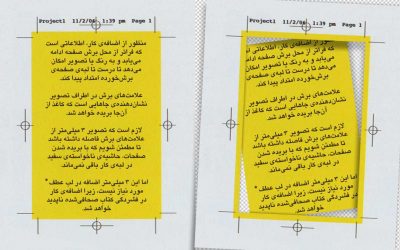 Project1 11/2/06 1:39 pm Page 1
منظور از اضافه‌ی کار، اطلاعاتی است
که فراتر از محل برش صفحه ادامه
می‌یابد و به رنگ یا تصویر امکان
می‌دهد تا درست تا لبه‌ی صفحه‌ی
برش‌خورده امتداد پیدا کند.
علامت‌های برش در اطراف تصویر
نشان‌دهنده‌ی جاهایی است که کاغذ از
آن‌جا بریده خواهد شد.
لازم است که تصویر ۳ میلی‌متر از
علامت‌های برش فاصله داشته باشد
تا مطمئن شویم که با بریده شدن
صفحات، حاشیه‌ی ناخواسته‌ی سفید
در لبه‌ی کار باقی نمی‌ماند.
اما این ۳ میلی‌متر اضافه در لب عطف*
مورد نیاز نیست، زیرا اضافه‌ی کار
در فشردگی کتاب صحافی‌شده ناپدید
خواهد شد.
Project1 11/2/06 1:39 pm Page 1
منظور از اضافه‌ی کار، اطلاعاتی است
که فراتر از محل برش صفحه ادامه
می‌یابد و به رنگ یا تصویر امکان
می‌دهد تا درست تا لبه‌ی صفحه‌ی
برش‌خورده امتداد پیدا کند.
علامت‌های برش در اطراف تصویر
نشان‌دهنده‌ی جاهایی است که کاغذ از
آن‌جا بریده خواهد شد.
لازم است که تصویر ۳ میلی‌متر از
علامت‌های برش فاصله داشته باشد
تا مطمئن شویم که با بریده شدن
صفحات، حاشیه‌ی ناخواسته‌ی سفید
در لبه‌ی کار باقی نمی‌ماند.
اما این ۳ میلی‌متر اضافه در لب عطف*
مورد نیاز نیست، زیرا اضافه‌ی کار
در فشردگی کتاب صحافی‌شده ناپدید
خواهد شد.